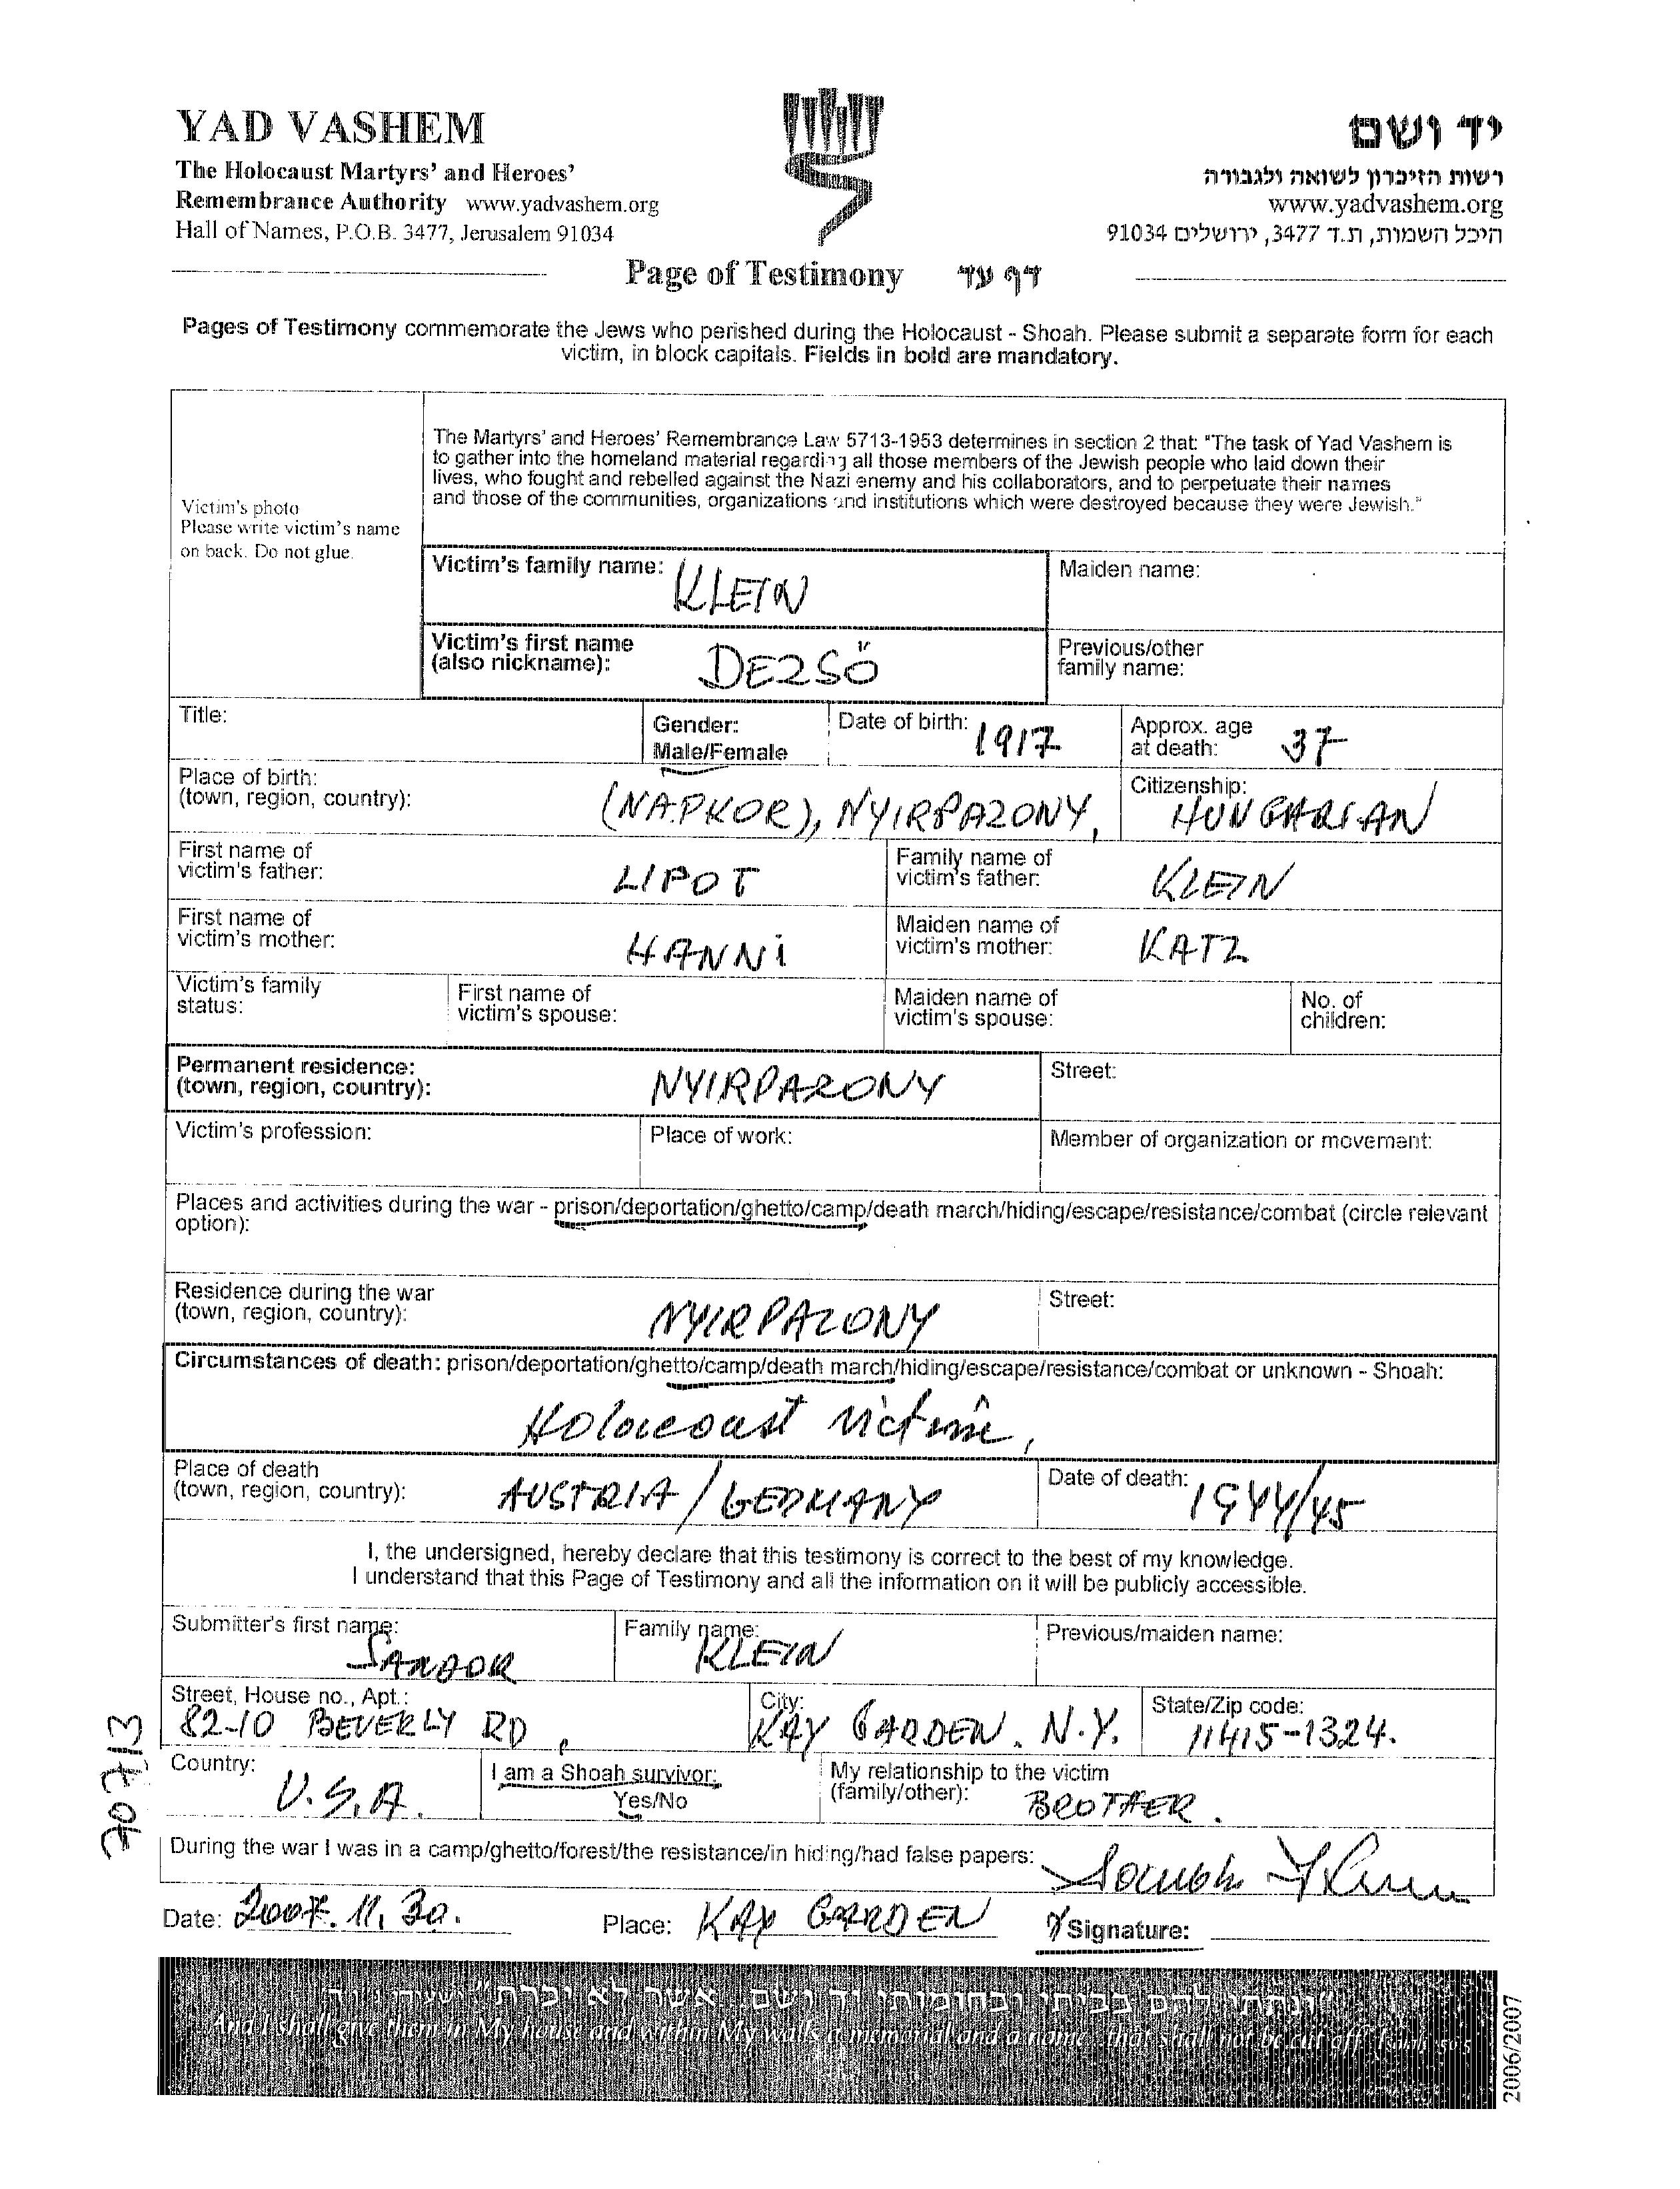 YAD VASHEM
The Holocaust Martyrs' and Heroes'
Remembrance Authority www.yadvashem.org
Hall of Names, P.O.B. 3477, Jerusalem 91034
יד ושם
רשות הזיכרון לשואה ולגבורה
www.yadvashem.org
היכל השמות, ת.ד 3477, ירושלים 91034
Page of Testimony דף עד
Pages of Testimony commemorate the Jews who perished during the Holocaust - Shoah. Please submit a separate form for each
victim, in block capitals. Fields in bold are mandatory.
Victim's photo
Please write victim's name
on back. Do not glue.
The Martyrs' and Heroes' Remembrance Law 5713-1953 determines in section 2 that: "The task of Yad Vashem is
to gather into the homeland material regarding all those members of the Jewish people who laid down their
lives, who fought and rebelled against the Nazi enemy and his collaborators, and to perpetuate their names
and those of the communities, organizations and institutions which were destroyed because they were Jewish."
Victim's family name: KLEIN
Maiden name:
Victim's first name
(also nickname): DEZSÖ
Previous/other
family name:
Title:
Gender:
Male/Female
Date of birth: 1917
Approx. age
at death: 37
Place of birth:
(town, region, country): (NAPKOR), NYIRPAZONY,
Citizenship:
HUNGARIAN
First name of
victim's father: LIPOT
Family name of
victim's father: KLEIN
First name of
victim's mother: HANNI
Maiden name of
victim's mother: KATZ
Victim's family
status:
First name of
victim's spouse:
Maiden name of
victim's spouse:
No. of
children:
Permanent residence:
(town, region, country): NYIRPAZONY
Street:
Victim's profession:
Place of work:
Member of organization or movement:
Places and activities during the war - prison/deportation/ghetto/camp/death march/hiding/escape/resistance/combat (circle relevant
option):
Residence during the war
(town, region, country): NYIRPAZONY
Street:
Circumstances of death: prison/deportation/ghetto/camp/death march/hiding/escape/resistance/combat or unknown - Shoah:
Holoceoust victim,
Place of death
(town, region, country): AUSTRIA / GERMANY
Date of death: 1944/45
I, the undersigned, hereby declare that this testimony is correct to the best of my knowledge.
I understand that this Page of Testimony and all the information on it will be publicly accessible.
Submitter's first name:
SANDOR
Family name:
KLEIN
Previous/maiden name:
Street, House no., Apt.:
82-10 BEVERLY RD,
City:
KAY GARDEN. N.Y.
State/Zip code:
11415-1324.
Country:
U.S.A.
I am a Shoah survivor:
Yes/No
My relationship to the victim
(family/other): BROTHER.
During the war I was in a camp/ghetto/forest/the resistance/in hiding/had false papers:
Date: 2007. 11. 30.
Place: KAY GARDEN
Signature:
"ונתתי להם בביתי ובחומותי יד ושם... אשר לא יכרת" ישעיהו נו, ה
And I shall give them in My house and within My walls a memorial and a name... that shall not be cut off." Isaiah 56:5
2006/2007